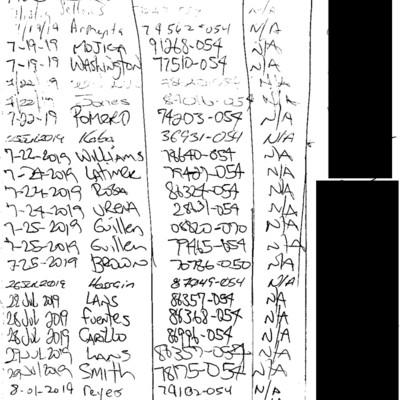 Sellers N/A
7/19/19 Armenta 79562-054 N/A
7-19-19 MOJICA 91268-054 N/A
7-19-19 WASHINGTON 77510-054 N/A
N/A
Jones N/A
7-22-19 ROMERO 74203-054 N/A
Koba 36931-054 N/A
7-22-2019 Williams 78640-054 N/A
7-24-2019 LATIMER 79407-054 N/A
7-24-2019 ROSA 86324-054 N/A
7-24-2019 URENA 28631-054 N/A
7-25-2019 Guillen 08820-070 N/A
7-25-2019 Guillen 79965-054 N/A
7-25-2019 BROWN 70786-050 N/A
Hussain 87049-054 N/A
28 Jul 2019 LANS 86357-054 N/A
28 Jul 2019 Fuentes 86368-054 N/A
28 Jul 2019 CARILLO 86996-054 N/A
29 Jul 2019 Lans 86357-054 N/A
29 Jul 2019 SMITH 78175-054 N/A
8-01-2019 Reyes 79182-054 N/A